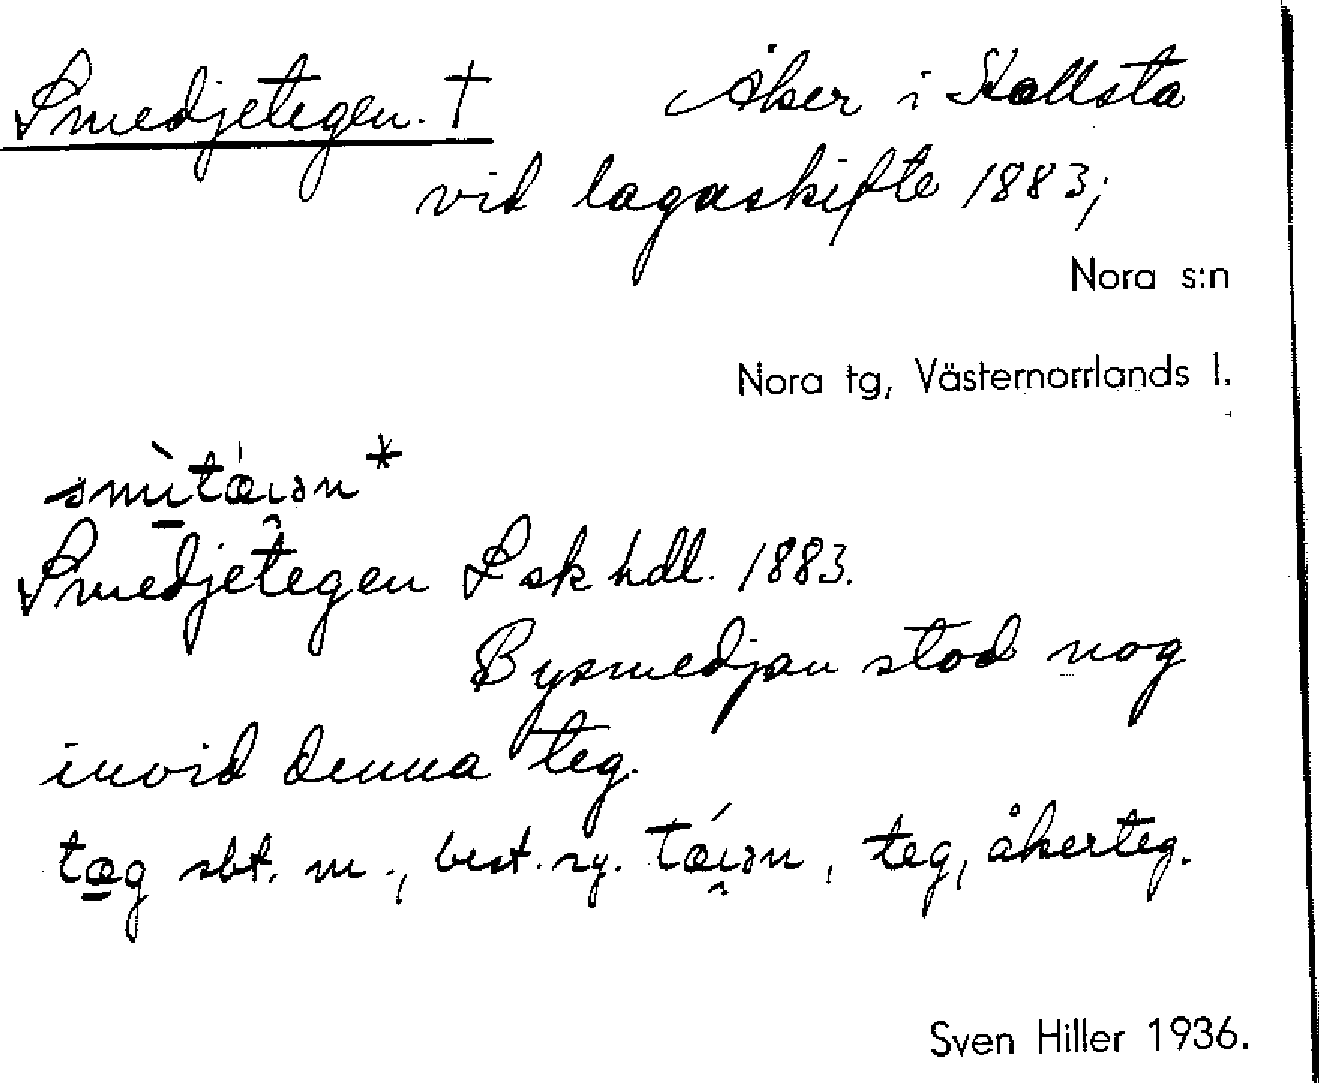 Smedjetegen. † Åker i Skallsta
vid lagaskifte 1883;
Nora s:n
Nora tg, Västernorrlands l.
smìtǽıən*
Smedjetegen Lskhdl. 1883.
Bysmedjan stod nog
invid denna teg.
tæg sbt. m., best. sg. tǽıən, teg, åkerteg.
Sven Hiller 1936.